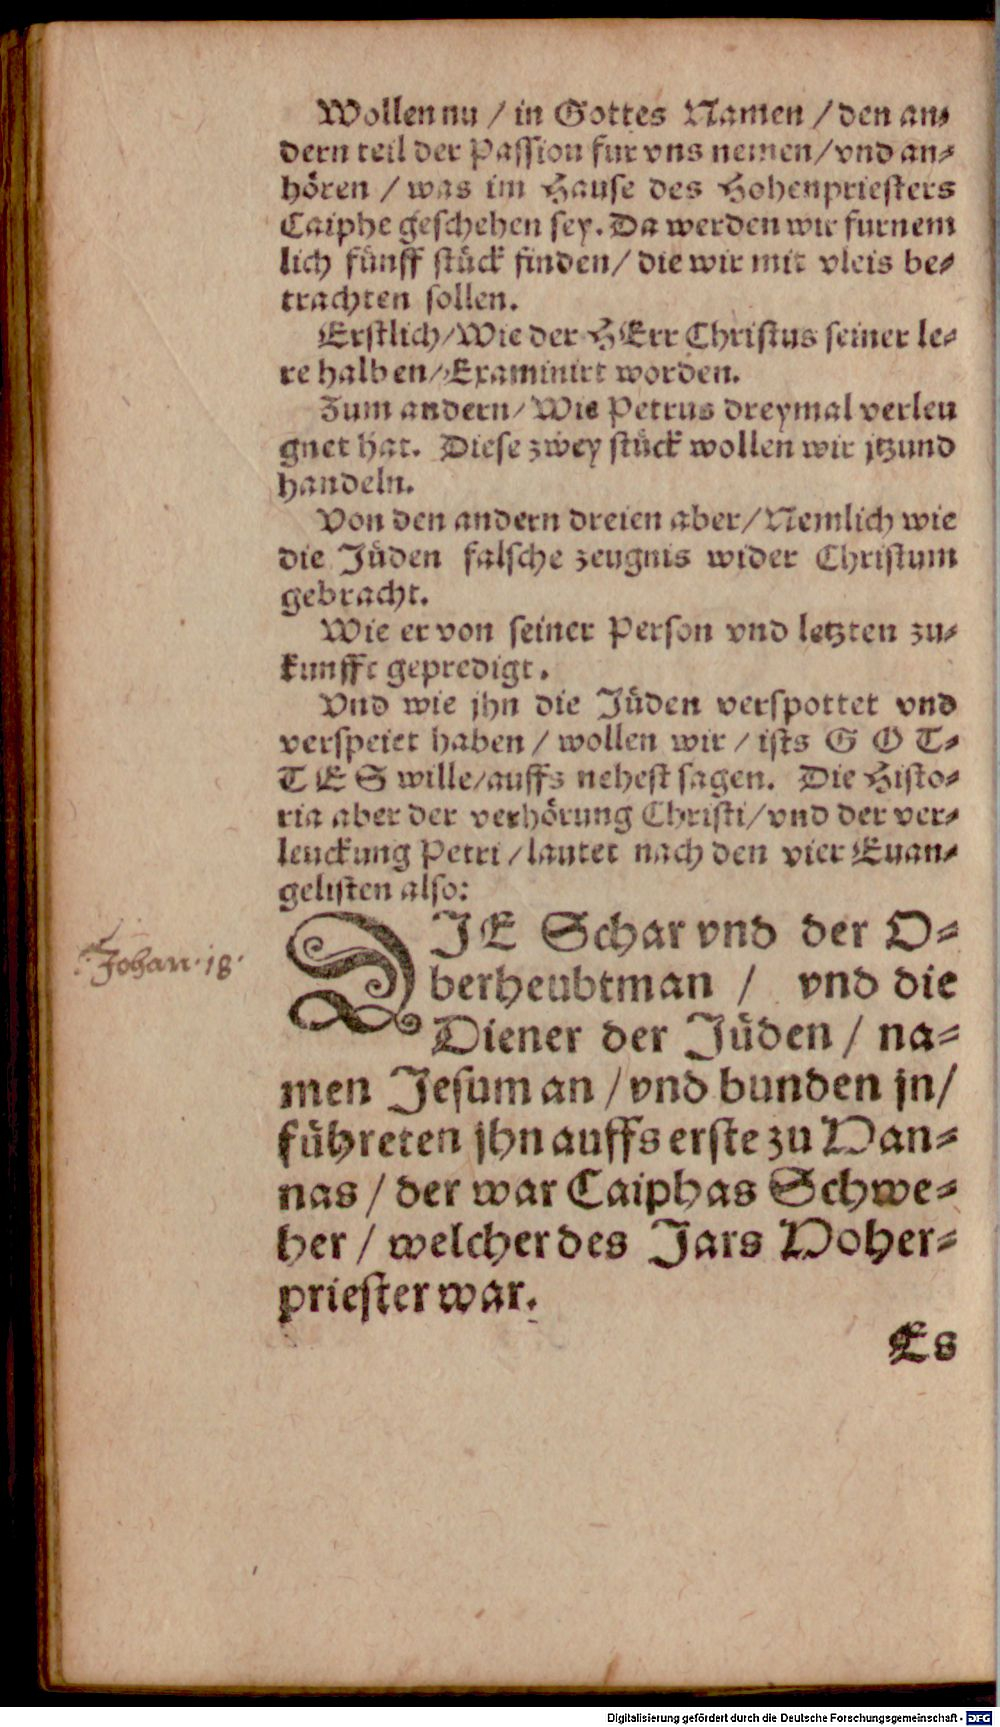 Wollen nu / in Gottes Namen / den an-
dern teil der Passion fur vns nemen / vnd an-
hören / was im Hause des Hohenpriesters
Caiphe geschehen sey. Da werden wir furnem
lich fünff stück finden / die wir mit vleis be-
trachten sollen.
Erstlich / Wie der HErr Christus seiner le-
re halben / Examinirt worden.
Zum andern / Wie Petrus dreymal verleu
gnet hat. Diese zwey stück wollen wir jtzund
handeln.
Von den andern dreien aber / Nemlich wie
die Jüden falsche zeugnis wider Christum
gebracht.
Wie er von seiner Person vnd letzten zu-
kunfft gepredigt.
Vnd wie jhn die Jüden verspottet vnd
verspeiet haben / wollen wir / ists G O T-
T E S wille / auffs nehest sagen. Die Histo-
ria aber der verhörung Christi / vnd der ver-
leuckung Petri / lautet nach den vier Euan-
gelisten also:
Johan. 18.
DIE Schar vnd der O-
berheubtman / vnd die
Diener der Jüden / na-
men Jesum an / vnd bunden jn /
führeten jhn auffs erste zu Han-
nas / der war Caiphas Schwe-
her / welcher des Jars Hoher-
priester war.
Es
Digitalisierung gefördert durch die Deutsche Forschungsgemeinschaft - DFG